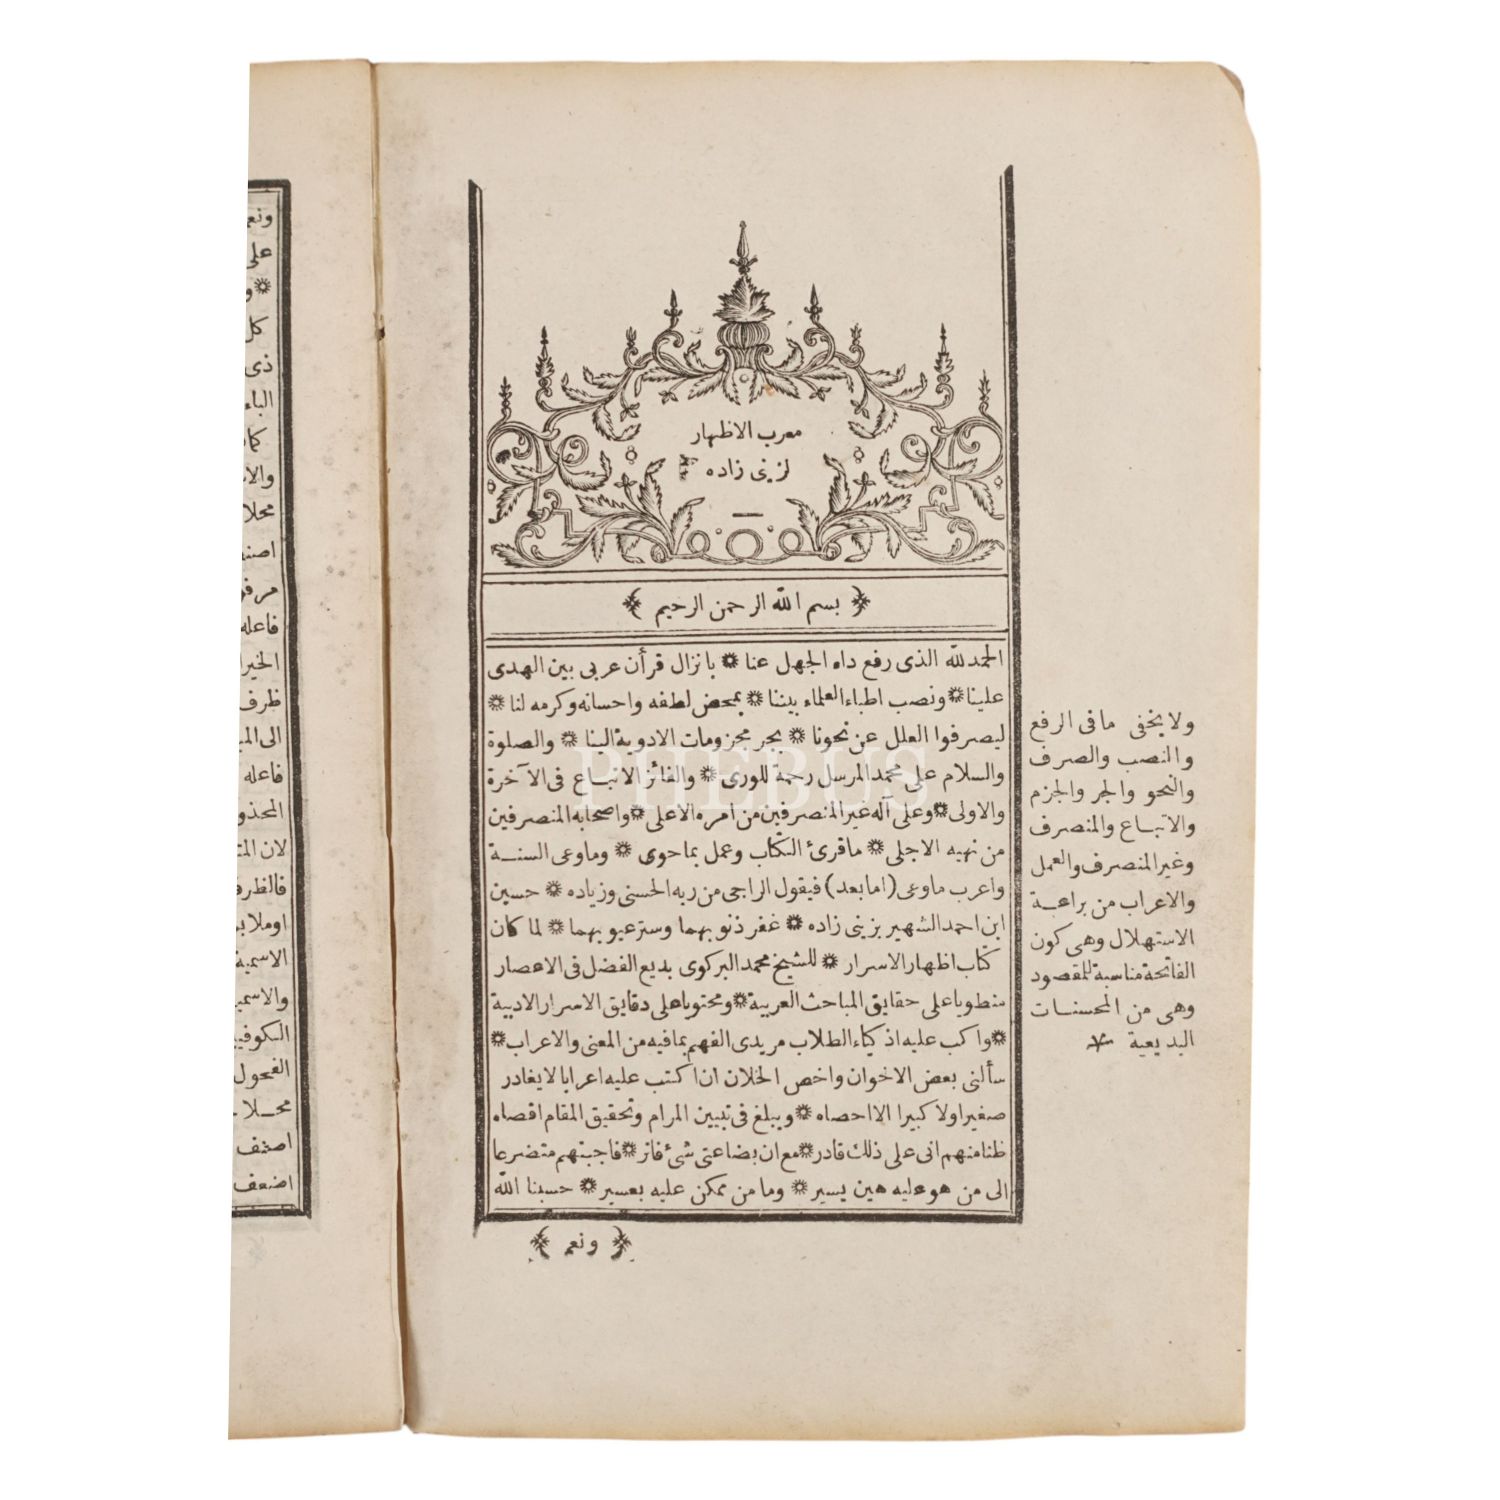 معرب الاظهار
لزينى زاده
بسم الله الرحمن الرحيم
الحمد لله الذى رفع داء الجهل عنا ۞ بانزال قرأن عربى بين الهدى
علينا ۞ ونصب اطباء العلماء بيننا ۞ بمحض لطفه واحسانه وكرمه لنا ۞
ليصرفوا العلل عن نحونا ۞ بجر مجزومات الادوية الينا ۞ والصلوة
والسلام على محمد المرسل رحمة للورى ۞ والفائز الاتباع فى الآخرة
والاولى ۞ وعلى آله غير المنصرفين من امره الاعلى ۞ واصحابه المنصرفين
من نهيه الاجلى ۞ ما قرئ الكتاب وعمل بما حوى ۞ وما وعى السنة
واعرب ما وعى (اما بعد) فيقول الراجى من ربه الحسنى وزياده ۞ حسين
ابن احمد الشهير بزينى زاده ۞ غفر ذنوبهما وستر عيوبهما ۞ لما كان
كتاب اظهار الاسرار ۞ للشيخ محمد البركوى بديع الفضل فى الاعصار
منطويا على حقايق المباحث العربية ۞ ومحتويا على دقايق الاسرار الادبية
۞ واكب عليه اذكياء الطلاب مريدى الفهم بما فيه من المعنى والاعراب ۞
سألنى بعض الاخوان واخص الخلان ان اكتب عليه اعرابا لا يغادر
صغيرا ولا كبيرا الا احصاه ۞ ويبلغ فى تبيين المرام وتحقيق المقام اقصاه
ظنا منهم انى على ذلك قادر ۞ مع ان بضاعتى شئ فاتر ۞ فاجبتهم متضرعا
الى من هو عليه هين يسير ۞ وما من ممكن عليه بعسير ۞ حسبنا الله
ونعم
ولا يخفى ما فى الرفع
والنصب والصرف
والنحو والجر والجزم
والاتباع والمنصرف
وغير المنصرف والعمل
والاعراب من براعة
الاستهلال وهى كون
الفاتحة مناسبة للمقصود
وهى من المحسنات
البديعية
ونعم
على
و
كل
ذى
كا
محلا
فاعله
ظرف
فاعله
المحذو
لان
فالظرف
الاسمية
الفحول
محلا
اضعف
PHEBUS